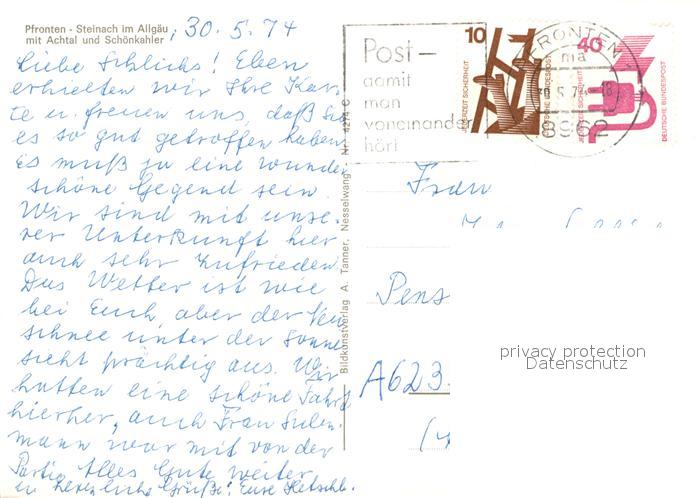 Pfronten - Steinach im Allgäu
mit Achtal und Schönkahler
, 30. 5. 74
Liebe Schlichs! Eben
erhielten wir Ihre Kar-
te u. freuen uns, daß Sie
es so gut getroffen haben.
Es muß ja eine wunder
schöne Gegend sein.
Wir sind mit unse-
rer Unterkunft hier
auch sehr zufrieden.
Das Wetter ist wie
bei Euch aber der Neu
schnee unter der Sonne
sieht prächtig aus. Wir
hatten eine schöne Fahrt
hierher, auch Frau
mann war mit von der
Partie. Alles Gute weiter
u. herzliche Grüße! Eure
Bildkunstverlag A. Tanner, Nesselwang Nr. 4274 C
Post-
damit
man
voneinander
hört
PFRONTEN
ma
8962
10
JEDERZEIT SICHERHEIT
DEUTSCHE BUNDESPOST
40
JEDERZEIT SICHERHEIT
DEUTSCHE BUNDESPOST
Frau
Pens
A623
privacy protection
Datenschutz